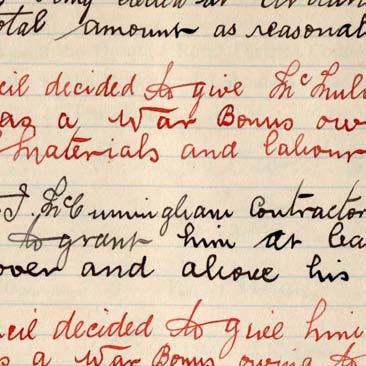 otal amount as reasonal
cil decided to give McMul
as a War Bonus ow
Materials and labour
J. McCunningham Contractor
to grant him at lea
over and above his
cil decided to give him
s a War Bonus owing to